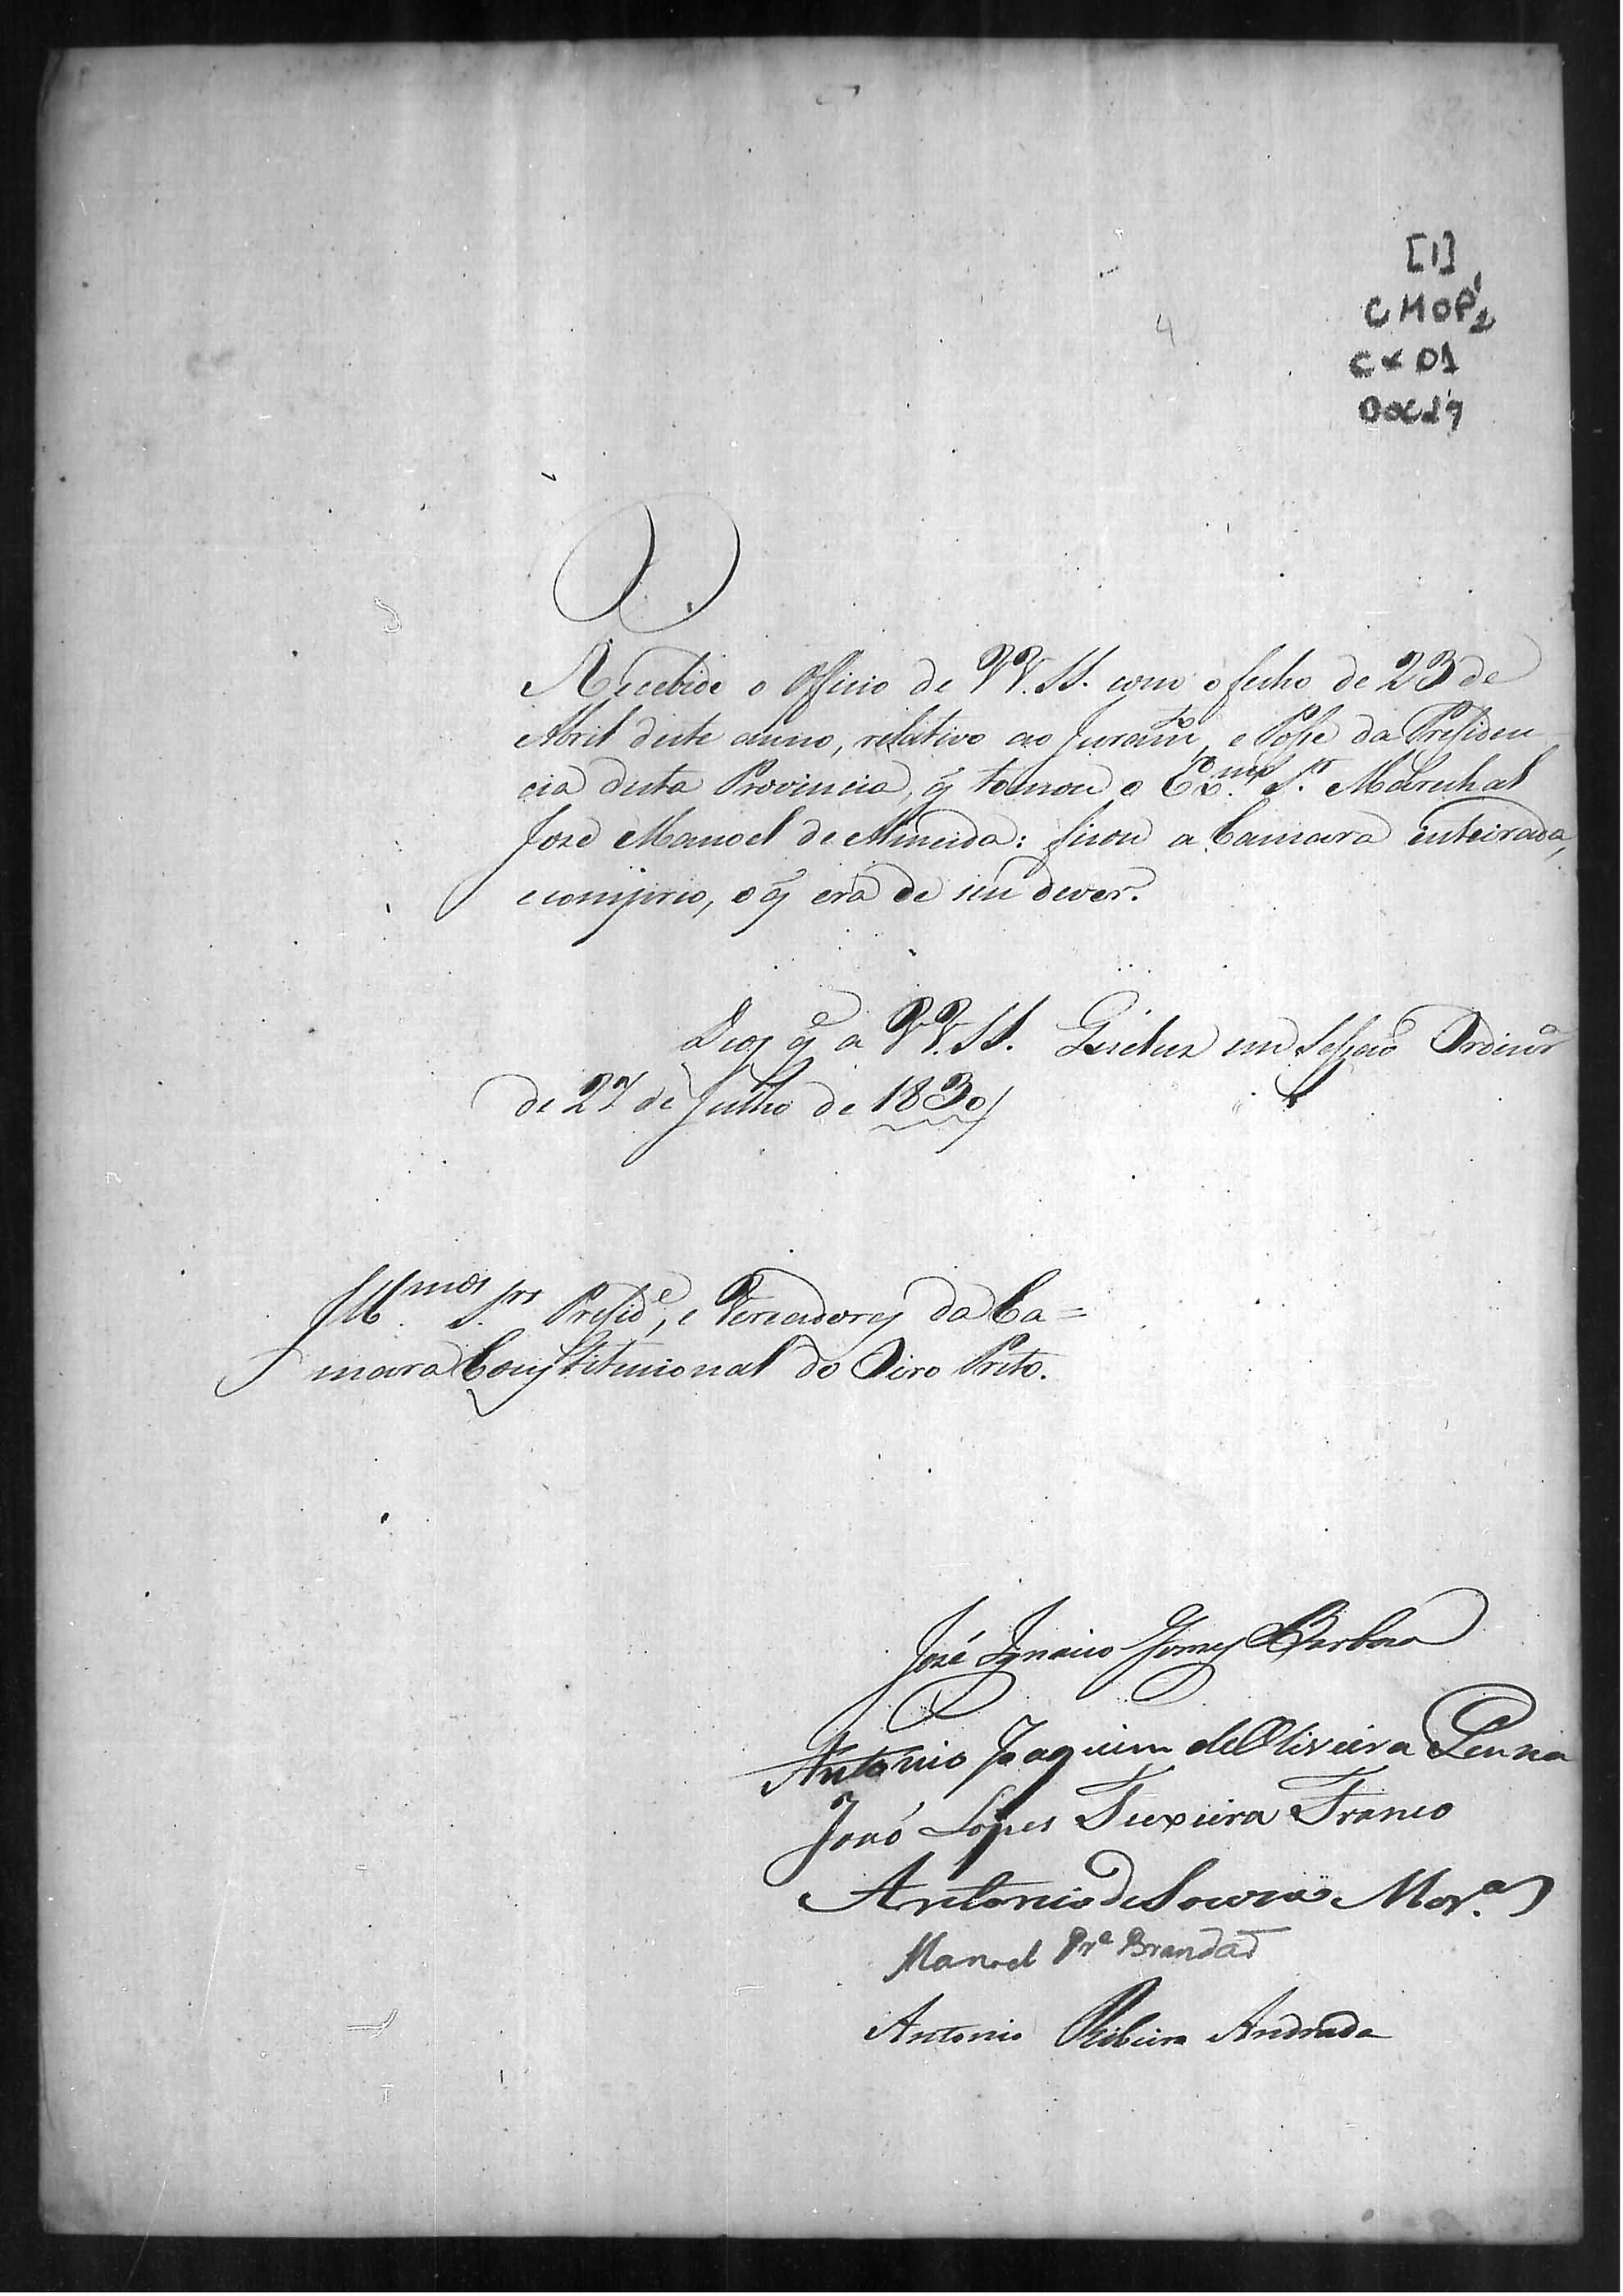 [1]
CMOP 1/2
CX 01
DOC 29
4
Recebido o Officio de VV. SS. com o fecho de 23 de
Abril deste anno, relativo ao Juram.to, e Posse da Presiden
cia desta Provincia, q̃ tomou o Ex.mo S.r Marechal
José Manoel de Almeida: ficou a Camara inteirada,
e comprio, o q̃ era de seu dever.
Deos g.e a VV. SS. Queluz em Sessaõ Ordinr.a
de 27 de Julho de 1830
Ill.mos S.rs Presid.e, e Vereadores da Ca=
mara Constitucional do Oiro Preto.
José Ignacio Gomes Barboza
Antonio Joaquim de Oliveira Penna
Joaõ Lopes Teixeira Franco
Antonio de Souza Mor.a
Manoel Pr.a Brandaõ
Antonio Ribeiro Andrade